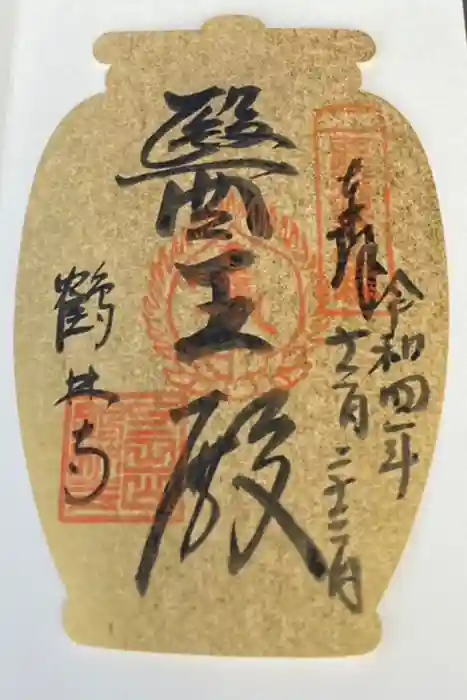 奉拝
令和四年
十二月二十二日
醫王殿
鶴林寺